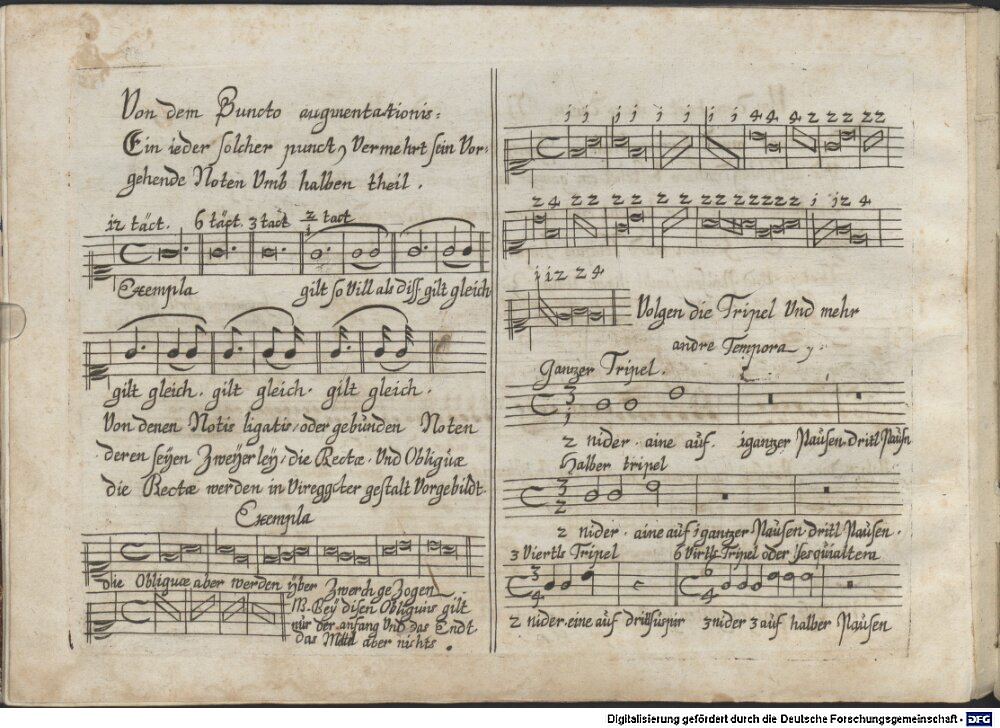 Von dem Buncto augmentationis:
Ein ieder solcher punct, Vermehrt sein Vor-
gehende Noten Vmb halben theil.
12 täct. 6 täct. 3 tact 2 tact
1
Exempla gilt so Vill als diss gilt gleich
gilt gleich. gilt gleich. gilt gleich.
Von denen Notis ligatis, oder gebunden Noten
deren seyen Zweyerley, die Rectæ, Vnd Obliquæ
die Rectæ werden in Viereggeter gestalt Vorgebildt.
Exempla
die Obliquæ aber werden yber Zwerch gezogen
Bey disen Obliquis gilt
nur der anfang Vnd das Endt
das Mittl aber nichts.
i i i i i i i i 4 4 4 2 2 2 2 2
2 4 2 2 2 2 2 2 2 2 2 2 2 2 i i2 4
i i2 2 4
Volgen die Tripel Vnd mehr
andre Tempora
Gantzer Tripel.
3
1
2 nider. aine auf. 1 gantzer Pausen. dritl Pausn
Halber tripel
3
2
2 nider. aine auf 1 gantzer Pausen. dritl Pausen.
3 Viertls Tripel 6 Virtls Tripel oder sesquialtera
3
4
6
4
2 nider. eine auf dritlsuspir 3 nider 3 auf halber Pausen
Digitalisierung gefördert durch die Deutsche Forschungsgemeinschaft - DFG